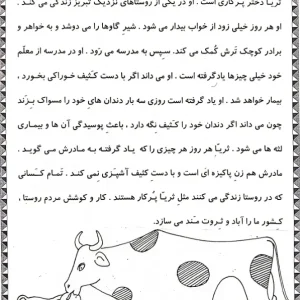 ثریا دختر پرکاری است . او در یکی از روستاهای نزدیک تبریز زندگی می کند .
او هر روز خیلی زود از خواب بیدار می شود . شیر گاوها را می دوشد و به خواهر و
برادر کوچک ترش کُمک می کند. سپس به مدرسه می رَود . او در مدرسه از معلّم
خود خیلی چیزها یادگرفته است . او می داند اگر با دست کثیف خوراکی بخورد ،
بیمار خواهد شد . او یاد گرفته است روزی سه بار دندان های خود را مسواک بزند
چون می داند اگر دندان خود را کثیف نگه دارد ، باعث پوسیدگی آن ها و بیماری
لثه ها می شود . ثریا هر روز هر چیزی را که یاد گرفته به مادرش می گوید .
مادرش هم زنِ پاکیزه ای است و با دست کثیف آشپزی نمی کند . تمام کسانی
که در روستا زندگی می کنند مثلِ ثریا پُرکار هستند . کار و کوشش مردم روستا ،
کشور ما را آباد و ثروت مند می سازد.